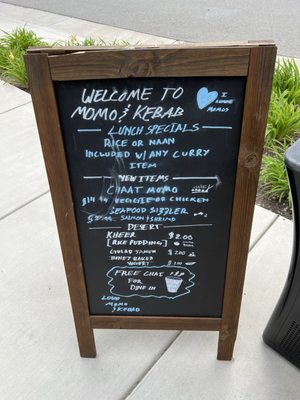 WELCOME TO
MOMO & KEBAB
I
MOMOS
LUNCH SPECIALS
RICE OR NAAN
INCLUDED W/ANY CURRY
ITEM
NEW ITEMS
CHAAT MOMO
VEGGIE OR CHICKEN
SEAFOOD SIZZLER
SALMON & SHRIMP
DESERT
KHEER $2.00
[RICE PUDDING]
GULAB JAMUN
YOGURT
FREE CHAI
FOR
DINE IN
MOMO
& KEBAB